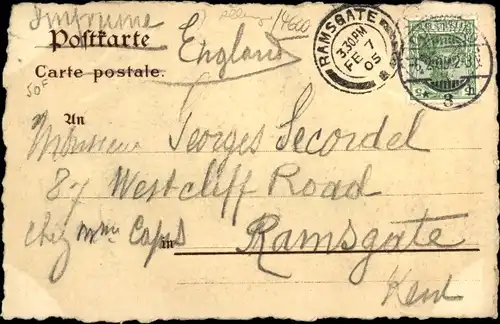 Imprimé
Postkarte
England
Carte postale.
50F
RAMSGATE
3.30PM
FE 7
05
An
Monsieur Georges Secordel
87 Westcliff Road
chez Mme Capes
in
Ramsgate
Kent